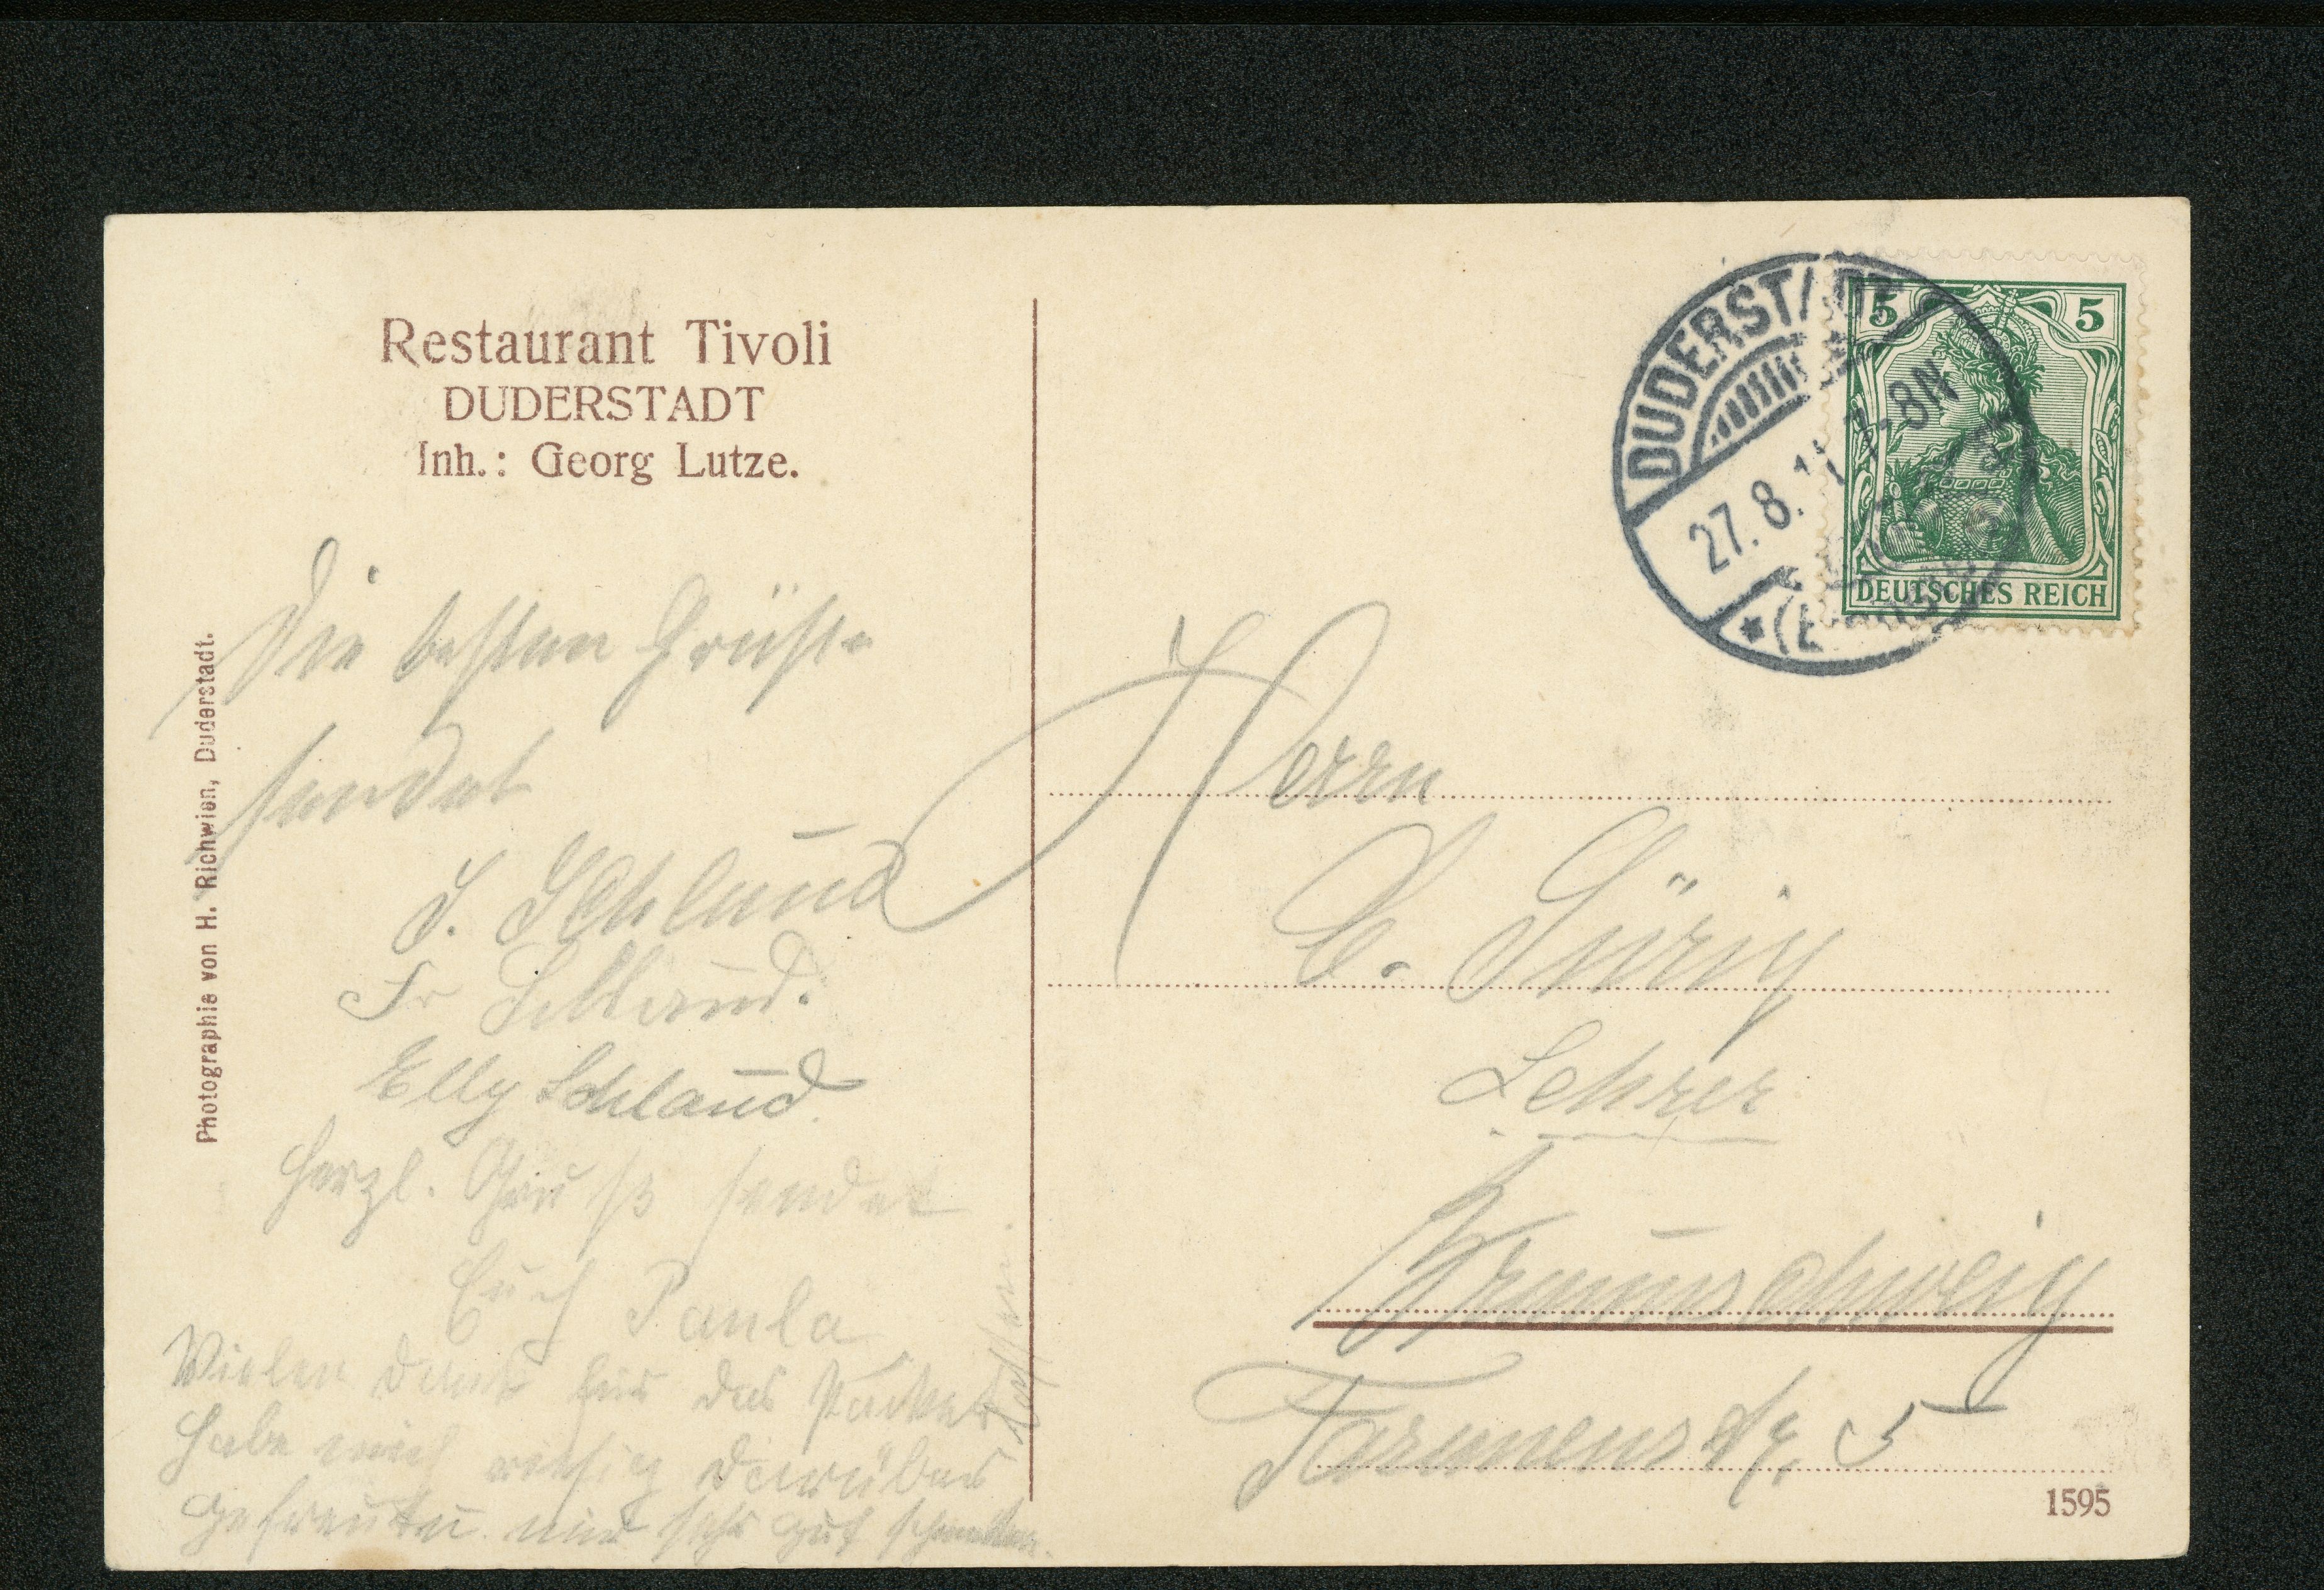 Restaurant Tivoli
DUDERSTADT
Inh.: Georg Lutze.
Photographie von H. Richwien, Duderstadt.
Die besten Grüße
sendet
Schlaud
Fr Schlaud.
Elly Schlaud.
Herzl. Gruß sendet
Euch Paula
Vielen Dank für das Packet
habe mich riesig darüber
gefreut u. mir sehr gut schmecken
lassen.
DUDERSTADT
27.8. 7-8N
5 5
DEUTSCHES REICH
Herrn
Lehrer
Braunschweig
5
1595